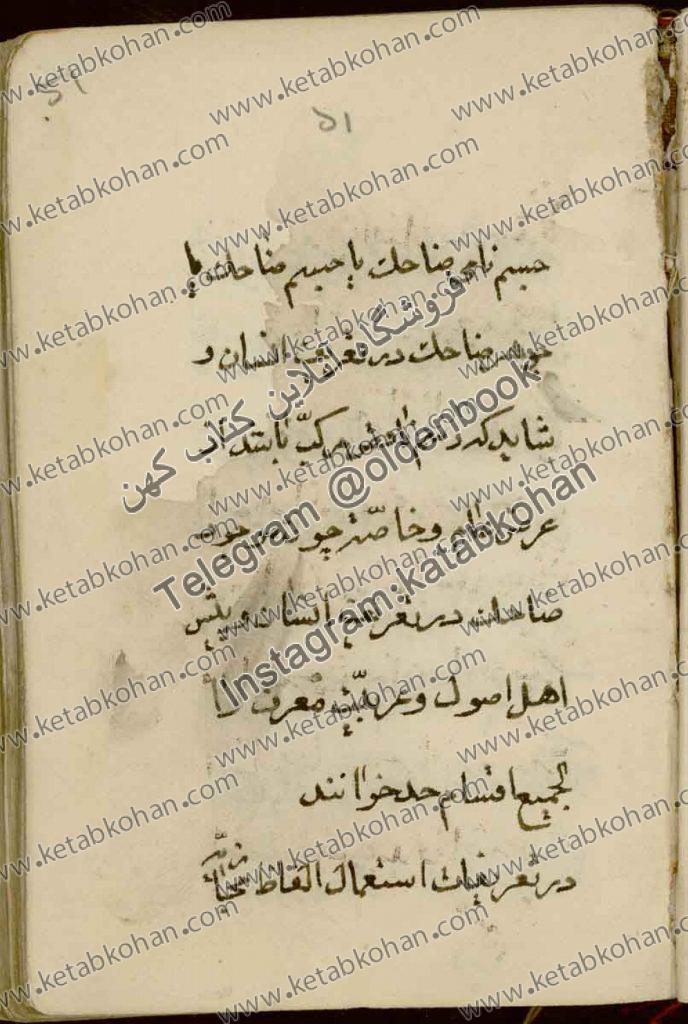 ۵۱
۵۱
جسم نامی ضاحک یا جسم ضاحک یا
جوهر ضاحک در تعریف انسان و
شاید که رسم مرکب باشد از
عرض عام و خاصّه چون موجود
ضاحک در تعریف انسان و پیش
اهل اصول و عربیّت معرف را
بجمیع اقسام حد خوانند
در تعریفات استعمال الفاظ
www.ketabkohan.com
فروشگاه آنلاین کتاب کهن
Telegram @oldenbook
Instagram:katabkohan